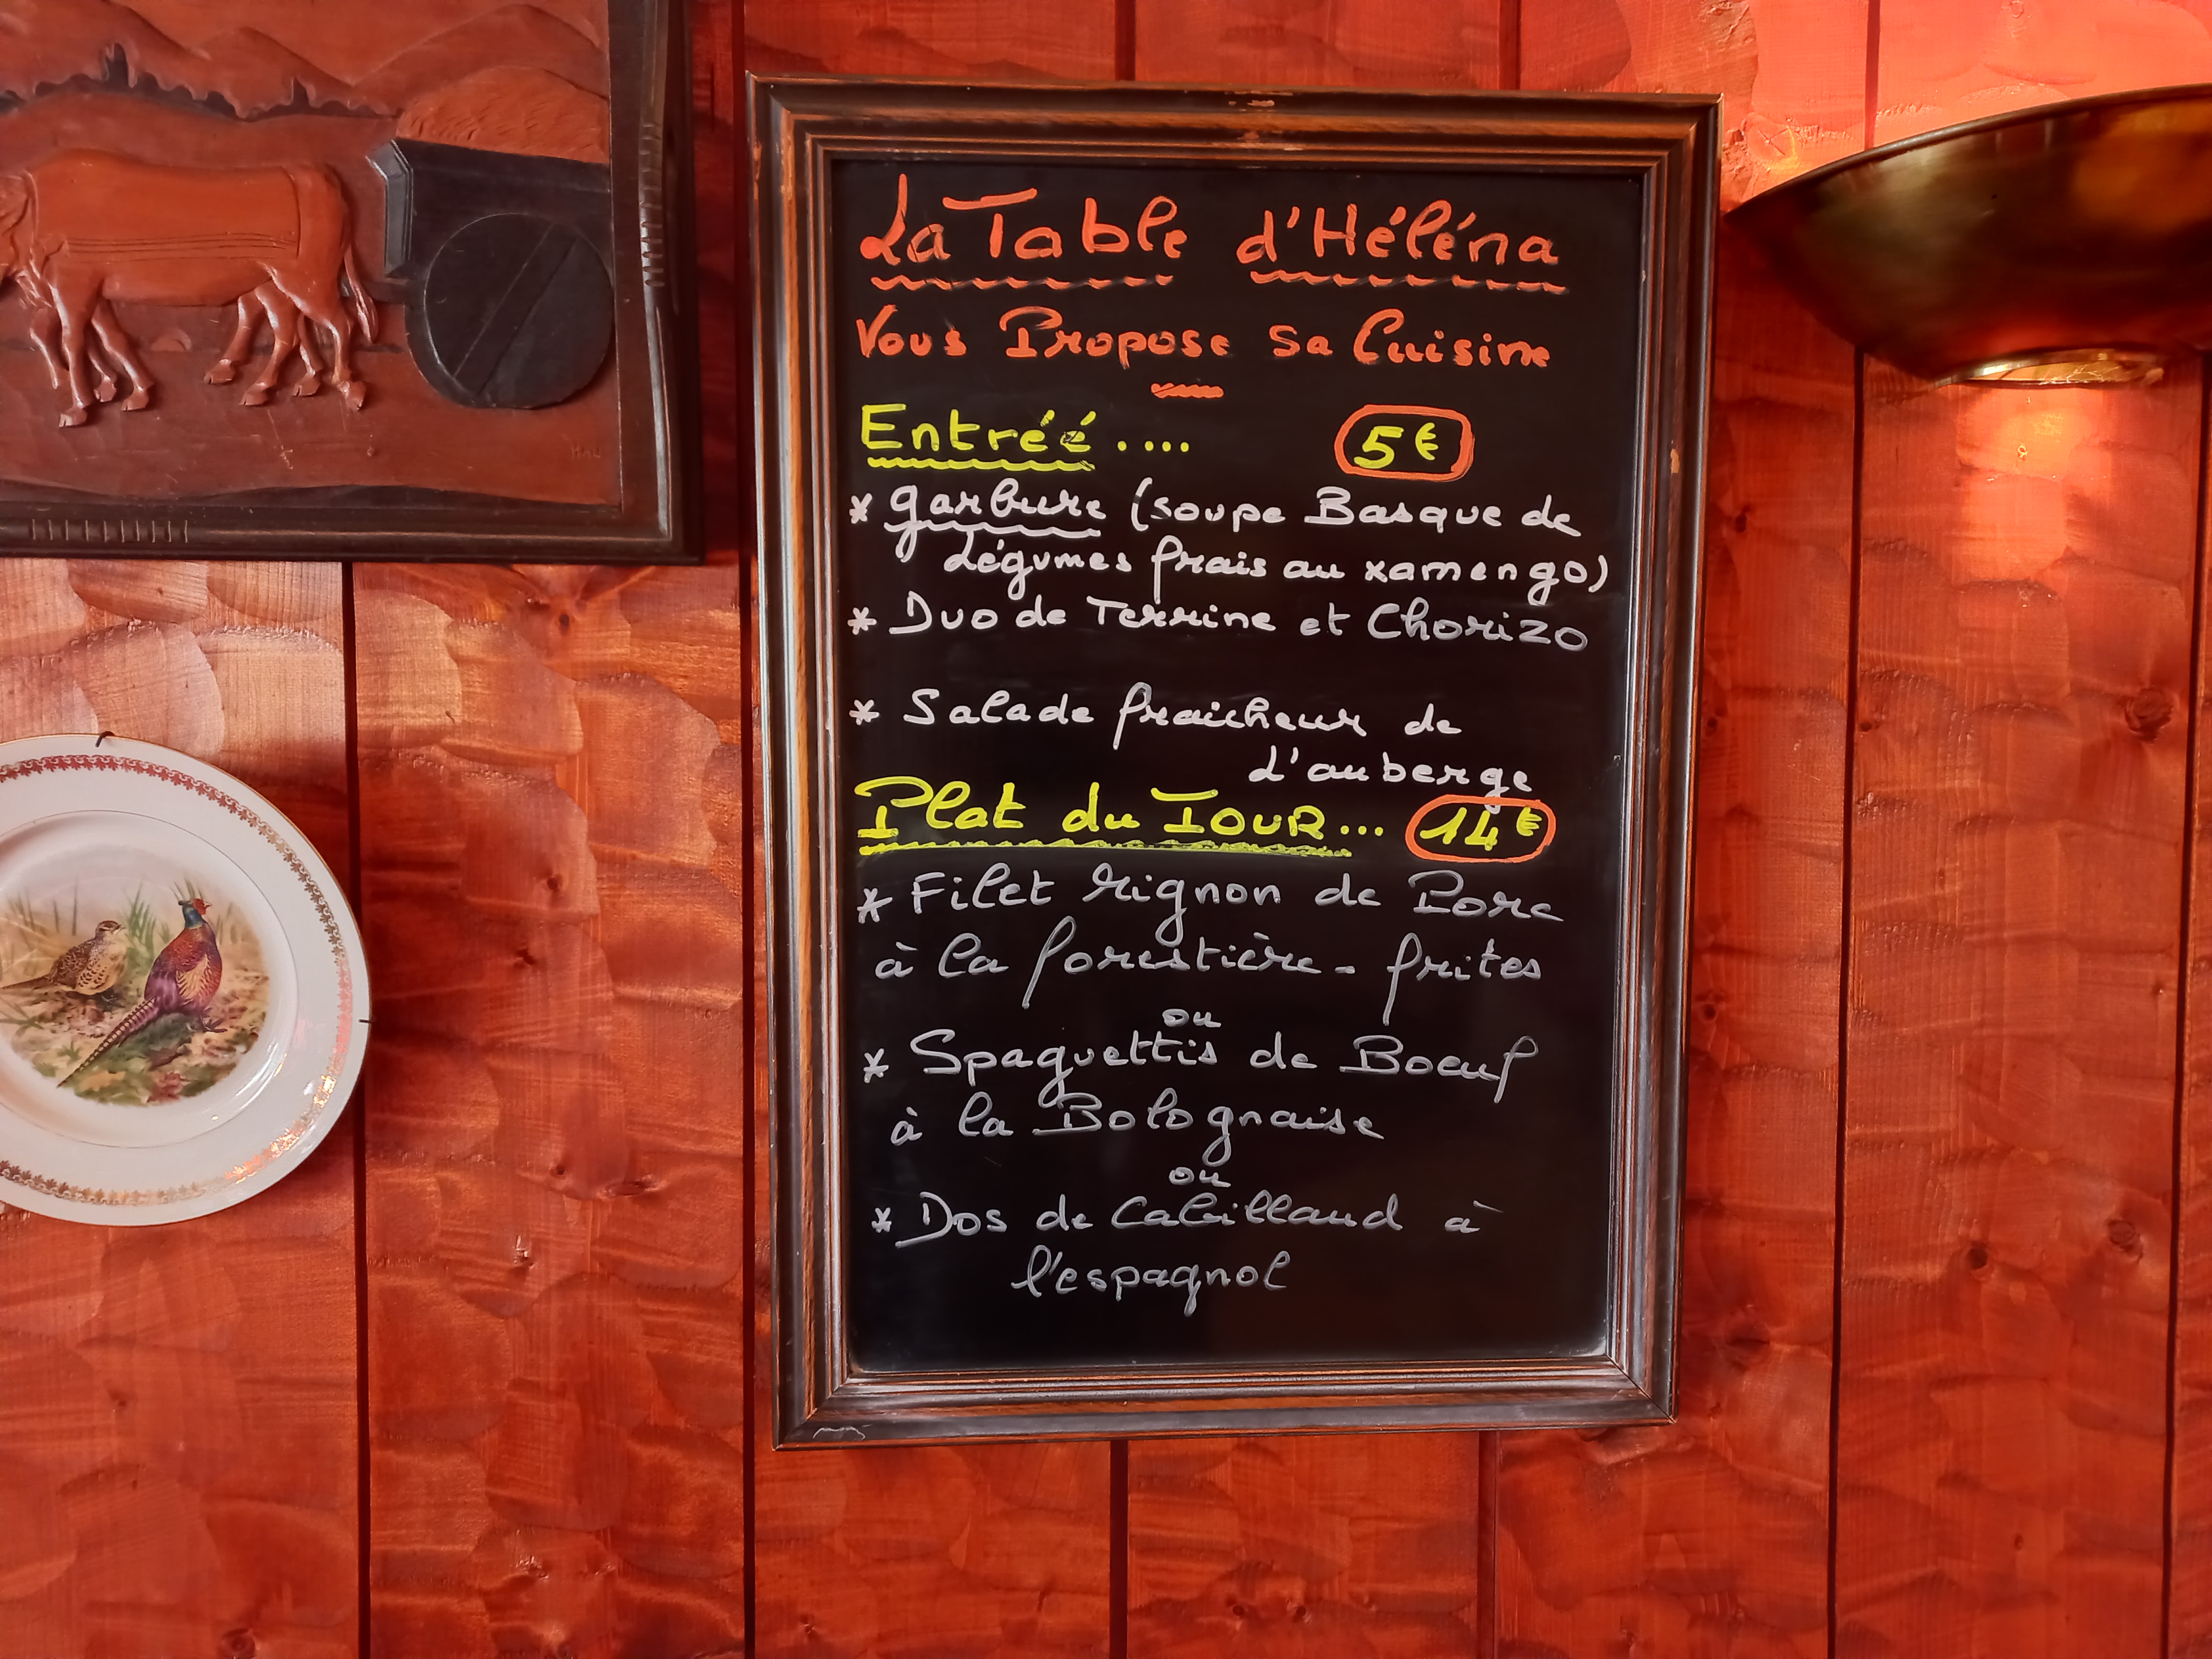 La Table d'Héléna
Vous Propose sa Cuisine
Entréé ....
5€
* garbure (soupe Basque de
Légumes frais au xamengo)
* Duo de Terrine et Chorizo
* Salade fraicheur de
L'auberge
Plat du JOUR...
14€
* Filet Mignon de Porc
à la forestière - frites
ou
* Spaguettis de Boeuf
à la Bolognaise
ou
* Dos de Cabillaud à
l'espagnol